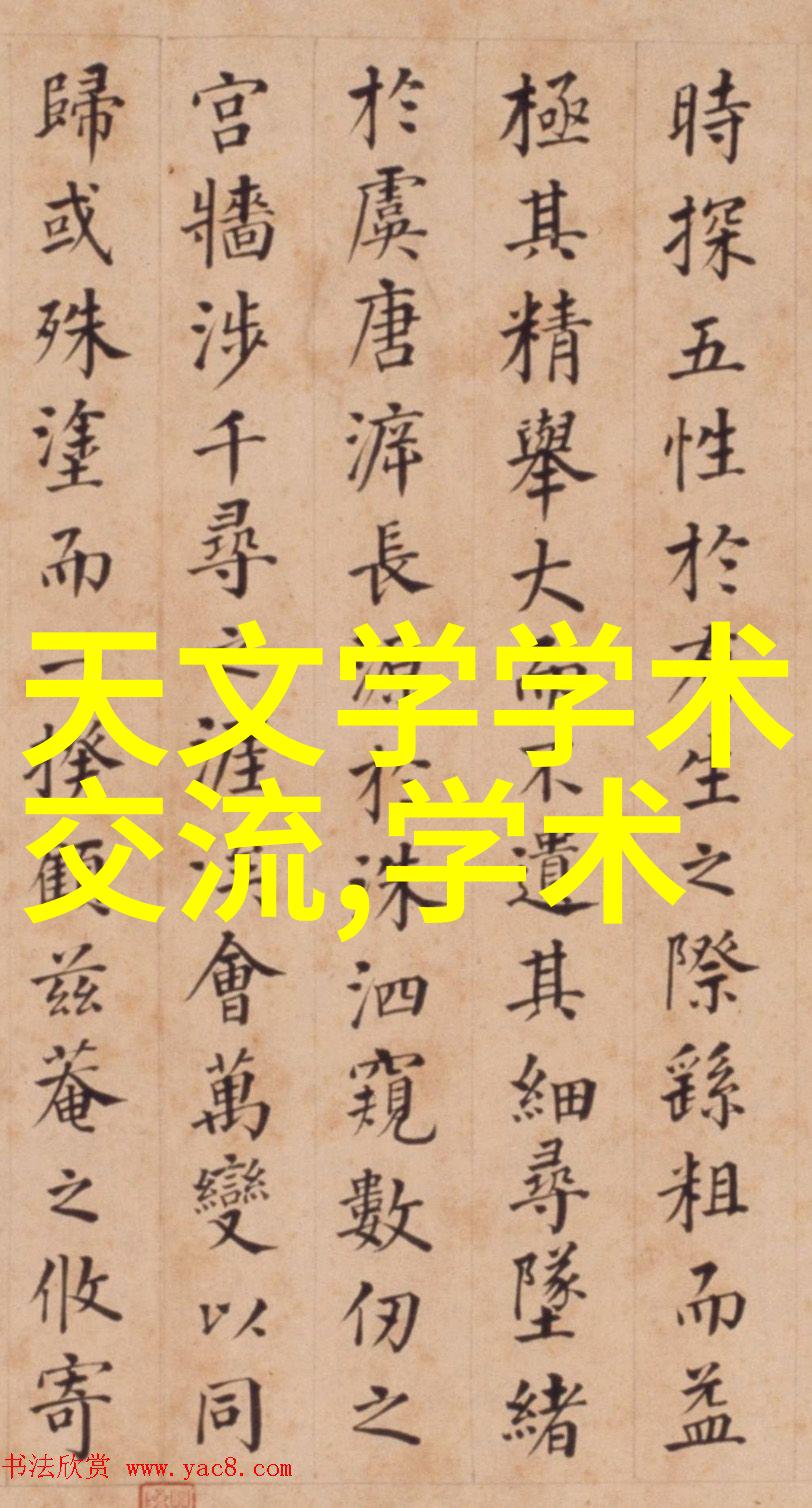 天文学学术
交流,学术
時探五性於生之際繇粗而益
極其精舉大而不遺其細尋墜緒
於虞唐長源於洙泗窺數仞之
宮牆涉千尋之涯涘會萬變以同
歸或殊塗而一揆顧茲菴之攸寄
书法欣赏 www.yac8.com